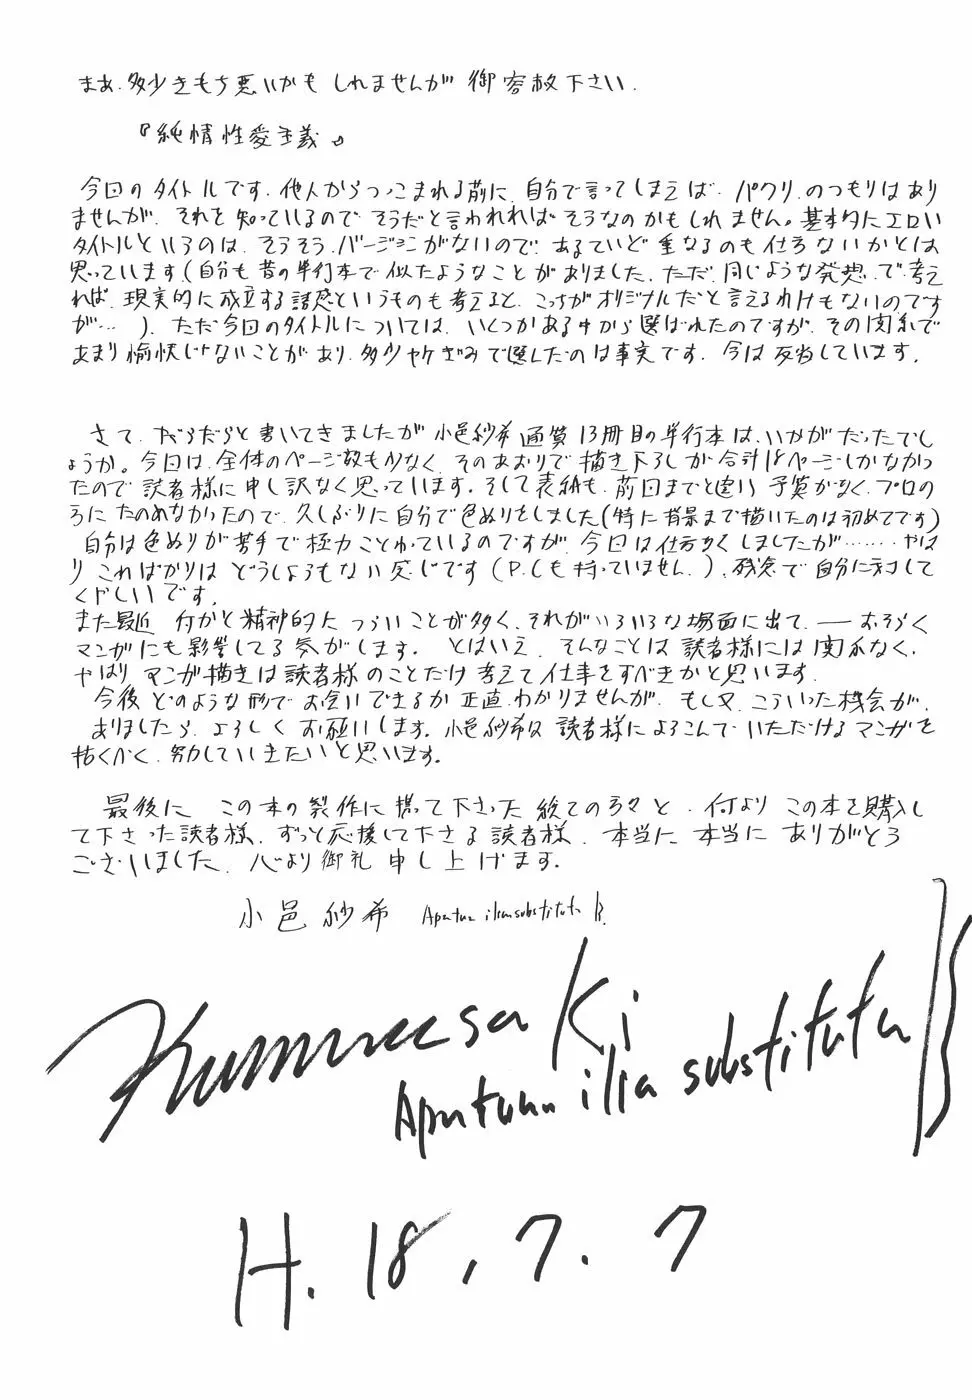 まあ、多少きもち悪いかもしれませんが御容赦下さい.
『純情性愛主義』
今回のタイトルです. 他人からつっこまれる前に、自分で言ってしまえば. パクリ.のつもりはあり
ませんが、それを知っているのでそうだと言われればそうなのかもしれません。基本的にエロい
タイトルというのは、そうそうバージョンがないので、あるていど重なるのも仕方ないかとは
思っています(自分も昔の単行本で似たようなことがありました、ただ、同じような発想、で考え
れば、現実的に成立する誘惑というものも考えると、こっちがオリジナルだと言えるわけもないのです
が…). ただ今回のタイトルについては、いくつかある中から選ばれたのですが、その関係で
あまり愉快じゃないことがあり、多少ヤケぎみで選んだのは事実です. 今は反省しています.
さて、だらだらと書いてきましたが小邑紗希通算13冊目の単行本は、いかがだったでし
ょうか。今回は、全体のページ数も少なく、そのあおりで描き下ろしが合計18ページしかなかっ
たので読者様に申し訳なく思っています。そして表紙も、前回までと違い予算がなく、プロの
方にたのめなかったので、久しぶりに自分で色ぬりをしました(特に背景まで描いたのは初めてです)
自分は色ぬりが苦手で極力ことわっているのですが、今回は仕方なくしましたが……やは
りこればかりはどうしようもない感じです(P.Cも持っていません.)、残念で自分に対して
くやしいです.
また最近何かと精神的につらいことが多く、それがいろいろな場面に出て、―おそらく
マンガにも影響してる気がします. とはいえ、そんなことは読者様には関係なく、
やはりマンガ描きは読者様のことだけ考えて仕事をすべきかと思います.
今後どのような形でお会いできるか正直わかりませんが、もし又、こういった機会が、
ありましたら、よろしくお願いします。小邑紗希は読者様によろこんでいただけるマンガを
描くべく、努力していきたいと思います。
最後にこの本の製作に携って下さった総ての方々と、何よりこの本を購入し
て下さった読者様、ずっと応援して下さる読者様、本当に本当にありがとう
ございました、心より御礼申し上げます.
小邑紗希 Apatura ilia substituta B.
Kumurasaki
Apatura ilia substituta B
H.18,7.7